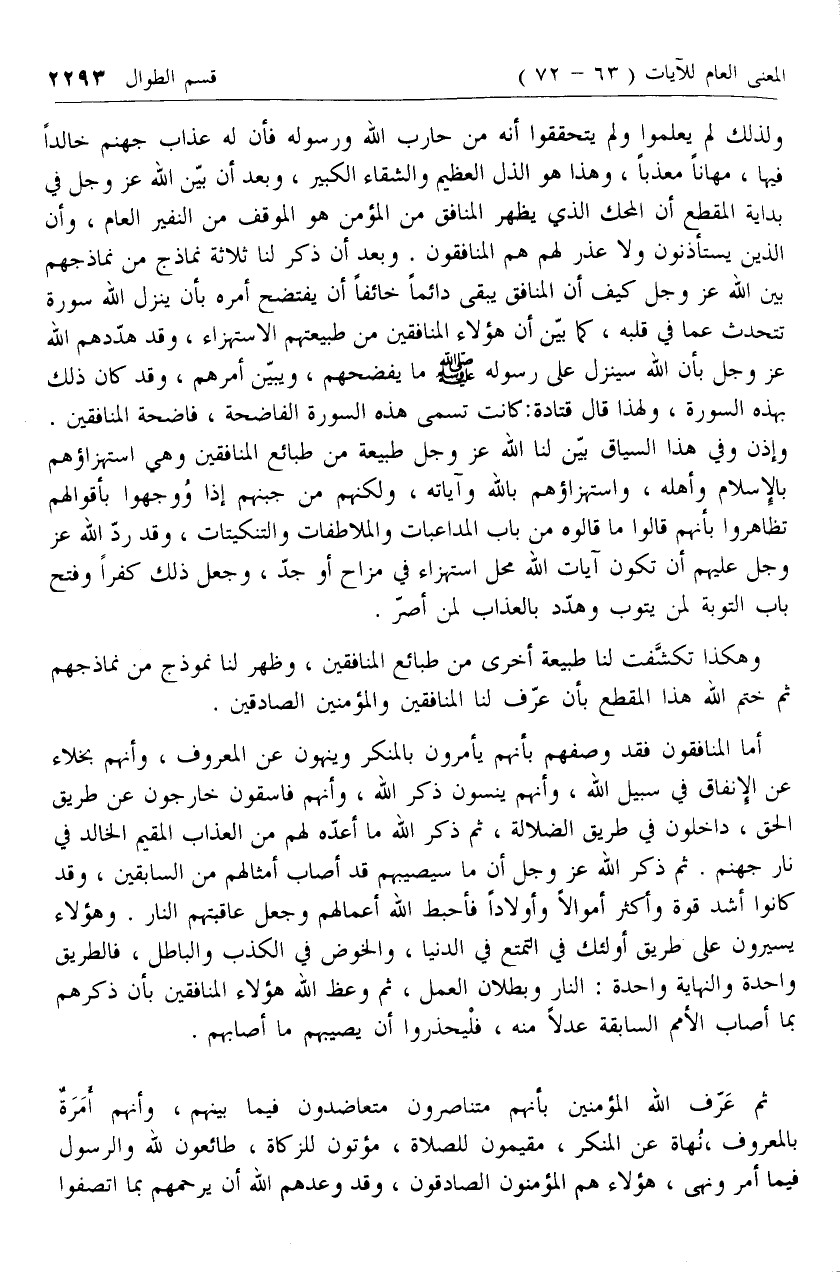 المعنى العام للآيات ( ٦٣ – ٧٢ ) قسم الطوال ٢٢٩٣
ولذلك لم يعلموا ولم يتحققوا أنه من حارب الله ورسوله فأن له عذاب جهنم خالداً
فيها ، مهاناً معذباً ، وهذا هو الذل العظيم والشقاء الكبير ، وبعد أن بيّن الله عز وجل في
بداية المقطع أن المحك الذي يظهر المنافق من المؤمن هو الموقف من النفير العام ، وأن
الذين يستأذنون ولا عذر لهم هم المنافقون . وبعد أن ذكر لنا ثلاثة نماذج من نماذجهم
بين الله عز وجل كيف أن المنافق يبقى دائماً خائفاً أن يفتضح أمره بأن ينزل الله سورة
تتحدث عما في قلبه ، كما بيّن أن هؤلاء المنافقين من طبيعتهم الاستهزاء ، وقد هدّدهم الله
عز وجل بأن الله سينزل على رسوله ﷺ ما يفضحهم ، ويبيّن أمرهم ، وقد كان ذلك
بهذه السورة ، ولهذا قال قتادة:كانت تسمى هذه السورة الفاضحة ، فاضحة المنافقين .
وإذن وفي هذا السياق بيّن لنا الله عز وجل طبيعة من طبائع المنافقين وهي استهزاؤهم
بالإسلام وأهله ، واستهزاؤهم بالله وآياته ، ولكنهم من جبنهم إذا وُوجهوا بأقوالهم
تظاهروا بأنهم قالوا ما قالوه من باب المداعبات والملاطفات والتنكيتات ، وقد ردّ الله عز
وجل عليهم أن تكون آيات الله محل استهزاء في مزاح أو جدّ ، وجعل ذلك كفراً وفتح
باب التوبة لمن يتوب وهدّد بالعذاب لمن أصرّ .
وهكذا تكشَّفت لنا طبيعة أخرى من طبائع المنافقين ، وظهر لنا نموذج من نماذجهم
ثم ختم الله هذا المقطع بأن عرّف لنا المنافقين والمؤمنين الصادقين .
أما المنافقون فقد وصفهم بأنهم يأمرون بالمنكر وينهون عن المعروف ، وأنهم بخلاء
عن الإنفاق في سبيل الله ، وأنهم ينسون ذكر الله ، وأنهم فاسقون خارجون عن طريق
الحق ، داخلون في طريق الضلالة ، ثم ذكر الله ما أعدّه لهم من العذاب المقيم الخالد في
نار جهنم . ثم ذكر الله عز وجل أن ما سيصيبهم قد أصاب أمثالهم من السابقين ، وقد
كانوا أشد قوة وأكثر أموالاً وأولاداً فأحبط الله أعمالهم وجعل عاقبتهم النار . وهؤلاء
يسيرون على طريق أولئك في التمتع في الدنيا ، والخوض في الكذب والباطل ، فالطريق
واحدة والنهاية واحدة : النار وبطلان العمل ، ثم وعظ الله هؤلاء المنافقين بأن ذكرهم
بما أصاب الأمم السابقة عدلاً منه ، فلْيحذروا أن يصيبهم ما أصابهم .
ثم عَرّف الله المؤمنين بأنهم متناصرون متعاضدون فيما بينهم ، وأنهم أَمَرَةٌ
بالمعروف ،نُهاة عن المنكر ، مقيمون للصلاة ، مؤتون للزكاة ، طائعون لله والرسول
فيما أمر ونهى ، هؤلاء هم المؤمنون الصادقون ، وقد وعدهم الله أن يرحمهم بما اتصفوا